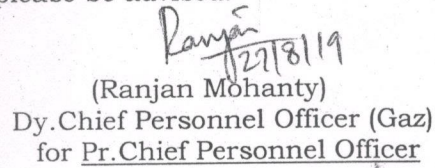 please be advised.
Ranjan
27/8/19
(Ranjan Mohanty)
Dy.Chief Personnel Officer (Gaz)
for Pr.Chief Personnel Officer